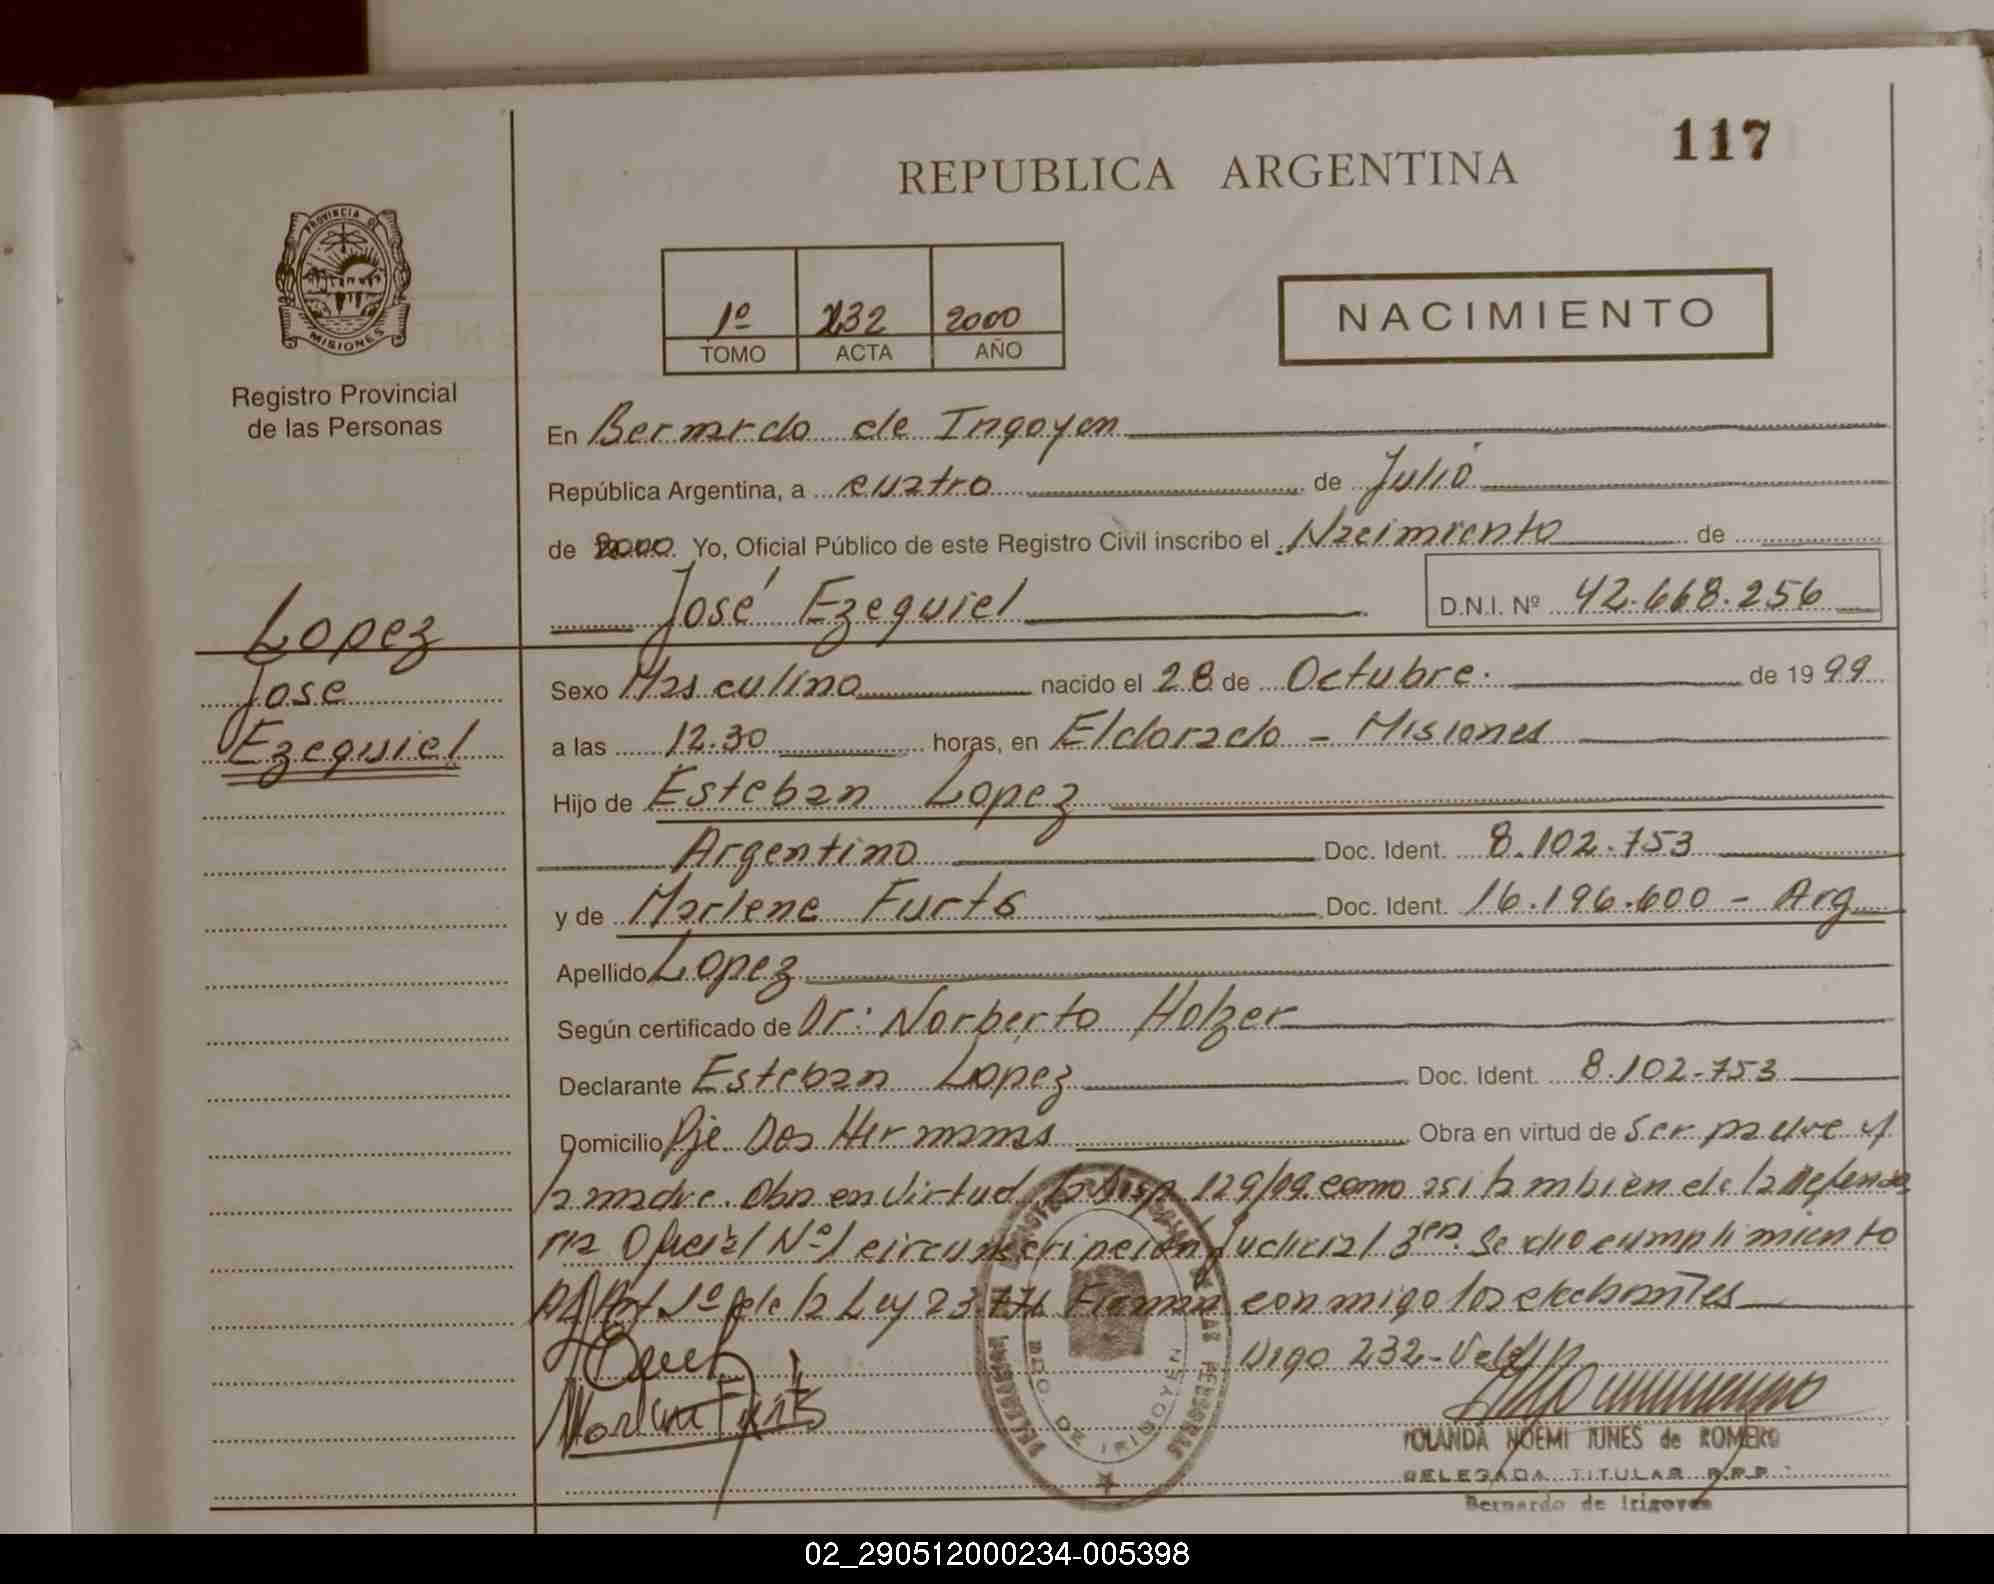 117
REPUBLICA ARGENTINA
PROVINCIA DE
MISIONES
Registro Provincial
de las Personas
1º 232 2000
TOMO ACTA AÑO
NACIMIENTO
En Bernardo de Irigoyen
República Argentina, a cuatro de Julio
de 2000 Yo, Oficial Público de este Registro Civil inscribo el Nacimiento de
José Ezequiel D.N.I. Nº 42.668.256
Lopez
Jose
Ezequiel
Sexo Masculino nacido el 28 de Octubre. de 1999
a las 12.30 horas, en Eldorado - Misiones
Hijo de Esteban Lopez
Argentino Doc. Ident. 8.102.753
y de Marlene Furts Doc. Ident. 16.196.600 - Arg
Apellido Lopez
Según certificado de Dr: Norberto Holzer
Declarante Esteban Lopez Doc. Ident. 8.102.753
Domicilio Pje. Dos Hermanas Obra en virtud de ser padre y
la madre. Obra en virtud la Disp. 129/99. como asi tambien de la Defenso
ria Oficial Nº1 circunscripcion Judicial 3era. Se dio cumplimiento
Art 1º de la Ley 23.776 Firman conmigo los declarantes
Digo 232 - Vale
Marlene Furts
BDO. DE IRIGOYEN
YOLANDA NOEMI IUNES de ROMERO
DELEGADA TITULAR R.P.P.
Bernardo de Irigoyen
02_290512000234-005398